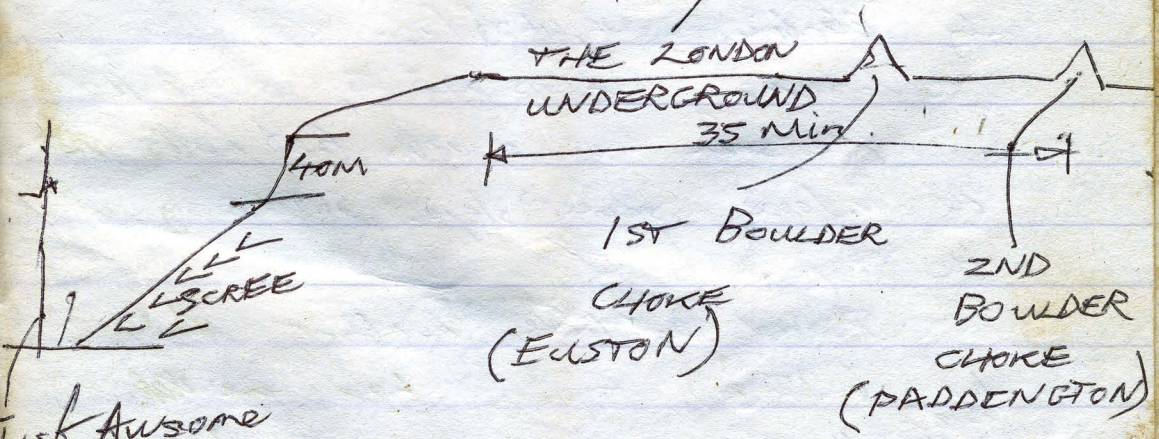 THE LONDON
UNDERGROUND
35 Min.
40M
SCREE
1ST BOULDER
CHOKE
(EUSTON)
2ND
BOULDER
CHOKE
(PADDENGTON)
Just Awsome